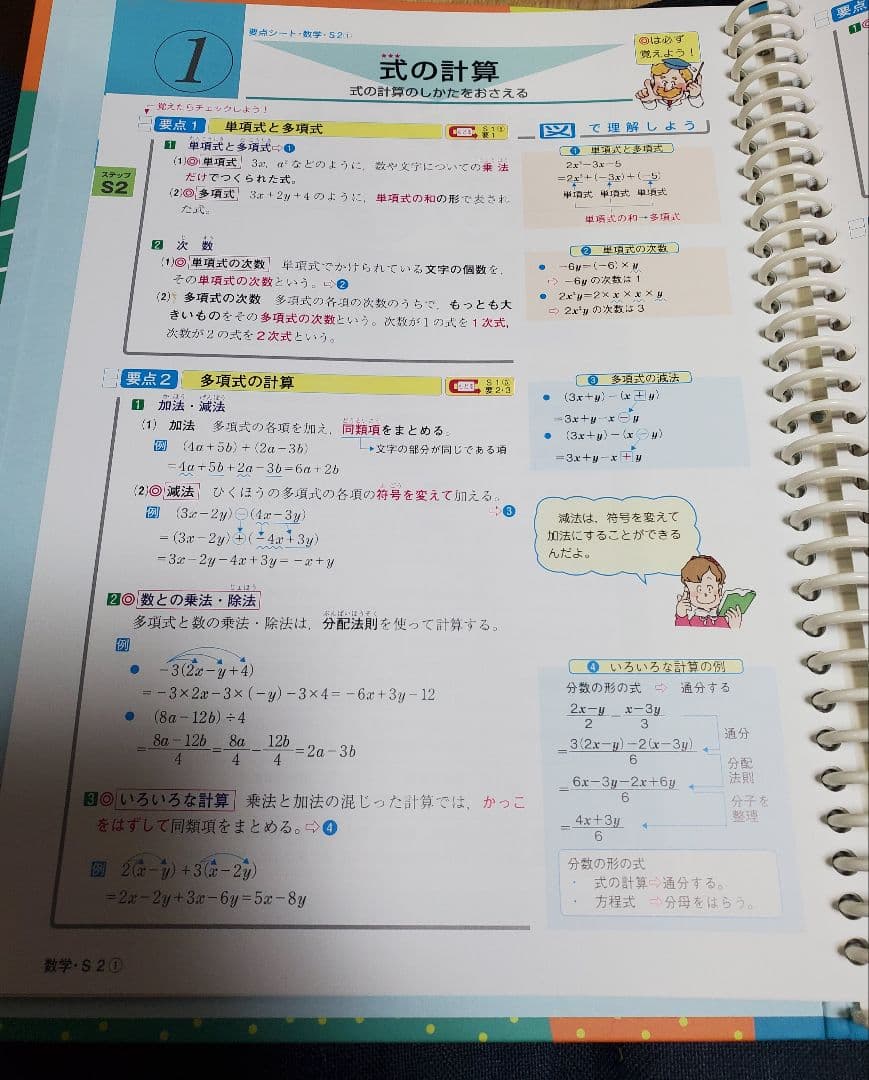 要点シート・数学・S2①
1
式の計算
式の計算のしかたをおさえる
◎は必ず
覚えよう!
覚えたらチェックしよう!
要点1 単項式と多項式
S1①
要1
ステップ
S2
1 単項式と多項式⇨❶
(1)◎単項式 3x, a²などのように，数や文字についての乗法
だけでつくられた式。
(2)◎多項式 3x+2y+4のように，単項式の和の形で表され
た式。
2 次数
(1)◎単項式の次数 単項式でかけられている文字の個数を，
その単項式の次数という。⇨❷
(2) 多項式の次数 多項式の各項の次数のうちで，もっとも大
きいものをその多項式の次数という。次数が1の式を1次式，
次数が2の式を2次式という。
図で理解しよう
❶ 単項式と多項式
2x²−3x−5
=2x²+(−3x)+(−5)
単項式 単項式 単項式
単項式の和→多項式
❷ 単項式の次数
● −6y=(−6)×y
⇨ −6yの次数は1
● 2x²y=2×x×x×y
⇨ 2x²yの次数は3
要点2 多項式の計算
S1①
要2・3
1 加法・減法
(1) 加法 多項式の各項を加え，同類項をまとめる。
例 (4a+5b)+(2a−3b)
文字の部分が同じである項
=4a+5b+2a−3b=6a+2b
(2)◎減法 ひくほうの多項式の各項の符号を変えて加える。
⇨❸
例 (3x−2y)−(4x−3y)
=(3x−2y)+(−4x+3y)
=3x−2y−4x+3y=−x+y
2◎数との乗法・除法
多項式と数の乗法・除法は，分配法則を使って計算する。
例
● −3(2x−y+4)
=−3×2x−3×(−y)−3×4=−6x+3y−12
● (8a−12b)÷4
=8a−12b/4=8a/4−12b/4=2a−3b
3◎いろいろな計算 乗法と加法の混じった計算では，かっこ
をはずして同類項をまとめる。⇨❹
例 2(x−y)+3(x−2y)
=2x−2y+3x−6y=5x−8y
❸ 多項式の減法
● (3x+y)−(x+y)
=3x+y−x−y
● (3x+y)−(x−y)
=3x+y−x+y
減法は，符号を変えて
加法にすることができる
んだよ。
❹ いろいろな計算の例
分数の形の式 ⇨ 通分する
2x−y/2−x−3y/3
通分
=3(2x−y)−2(x−3y)/6
分配
法則
=6x−3y−2x+6y/6
分子を
整理
=4x+3y/6
分数の形の式
・ 式の計算⇨通分する。
・ 方程式 ⇨分母をはらう。
数学・S2①